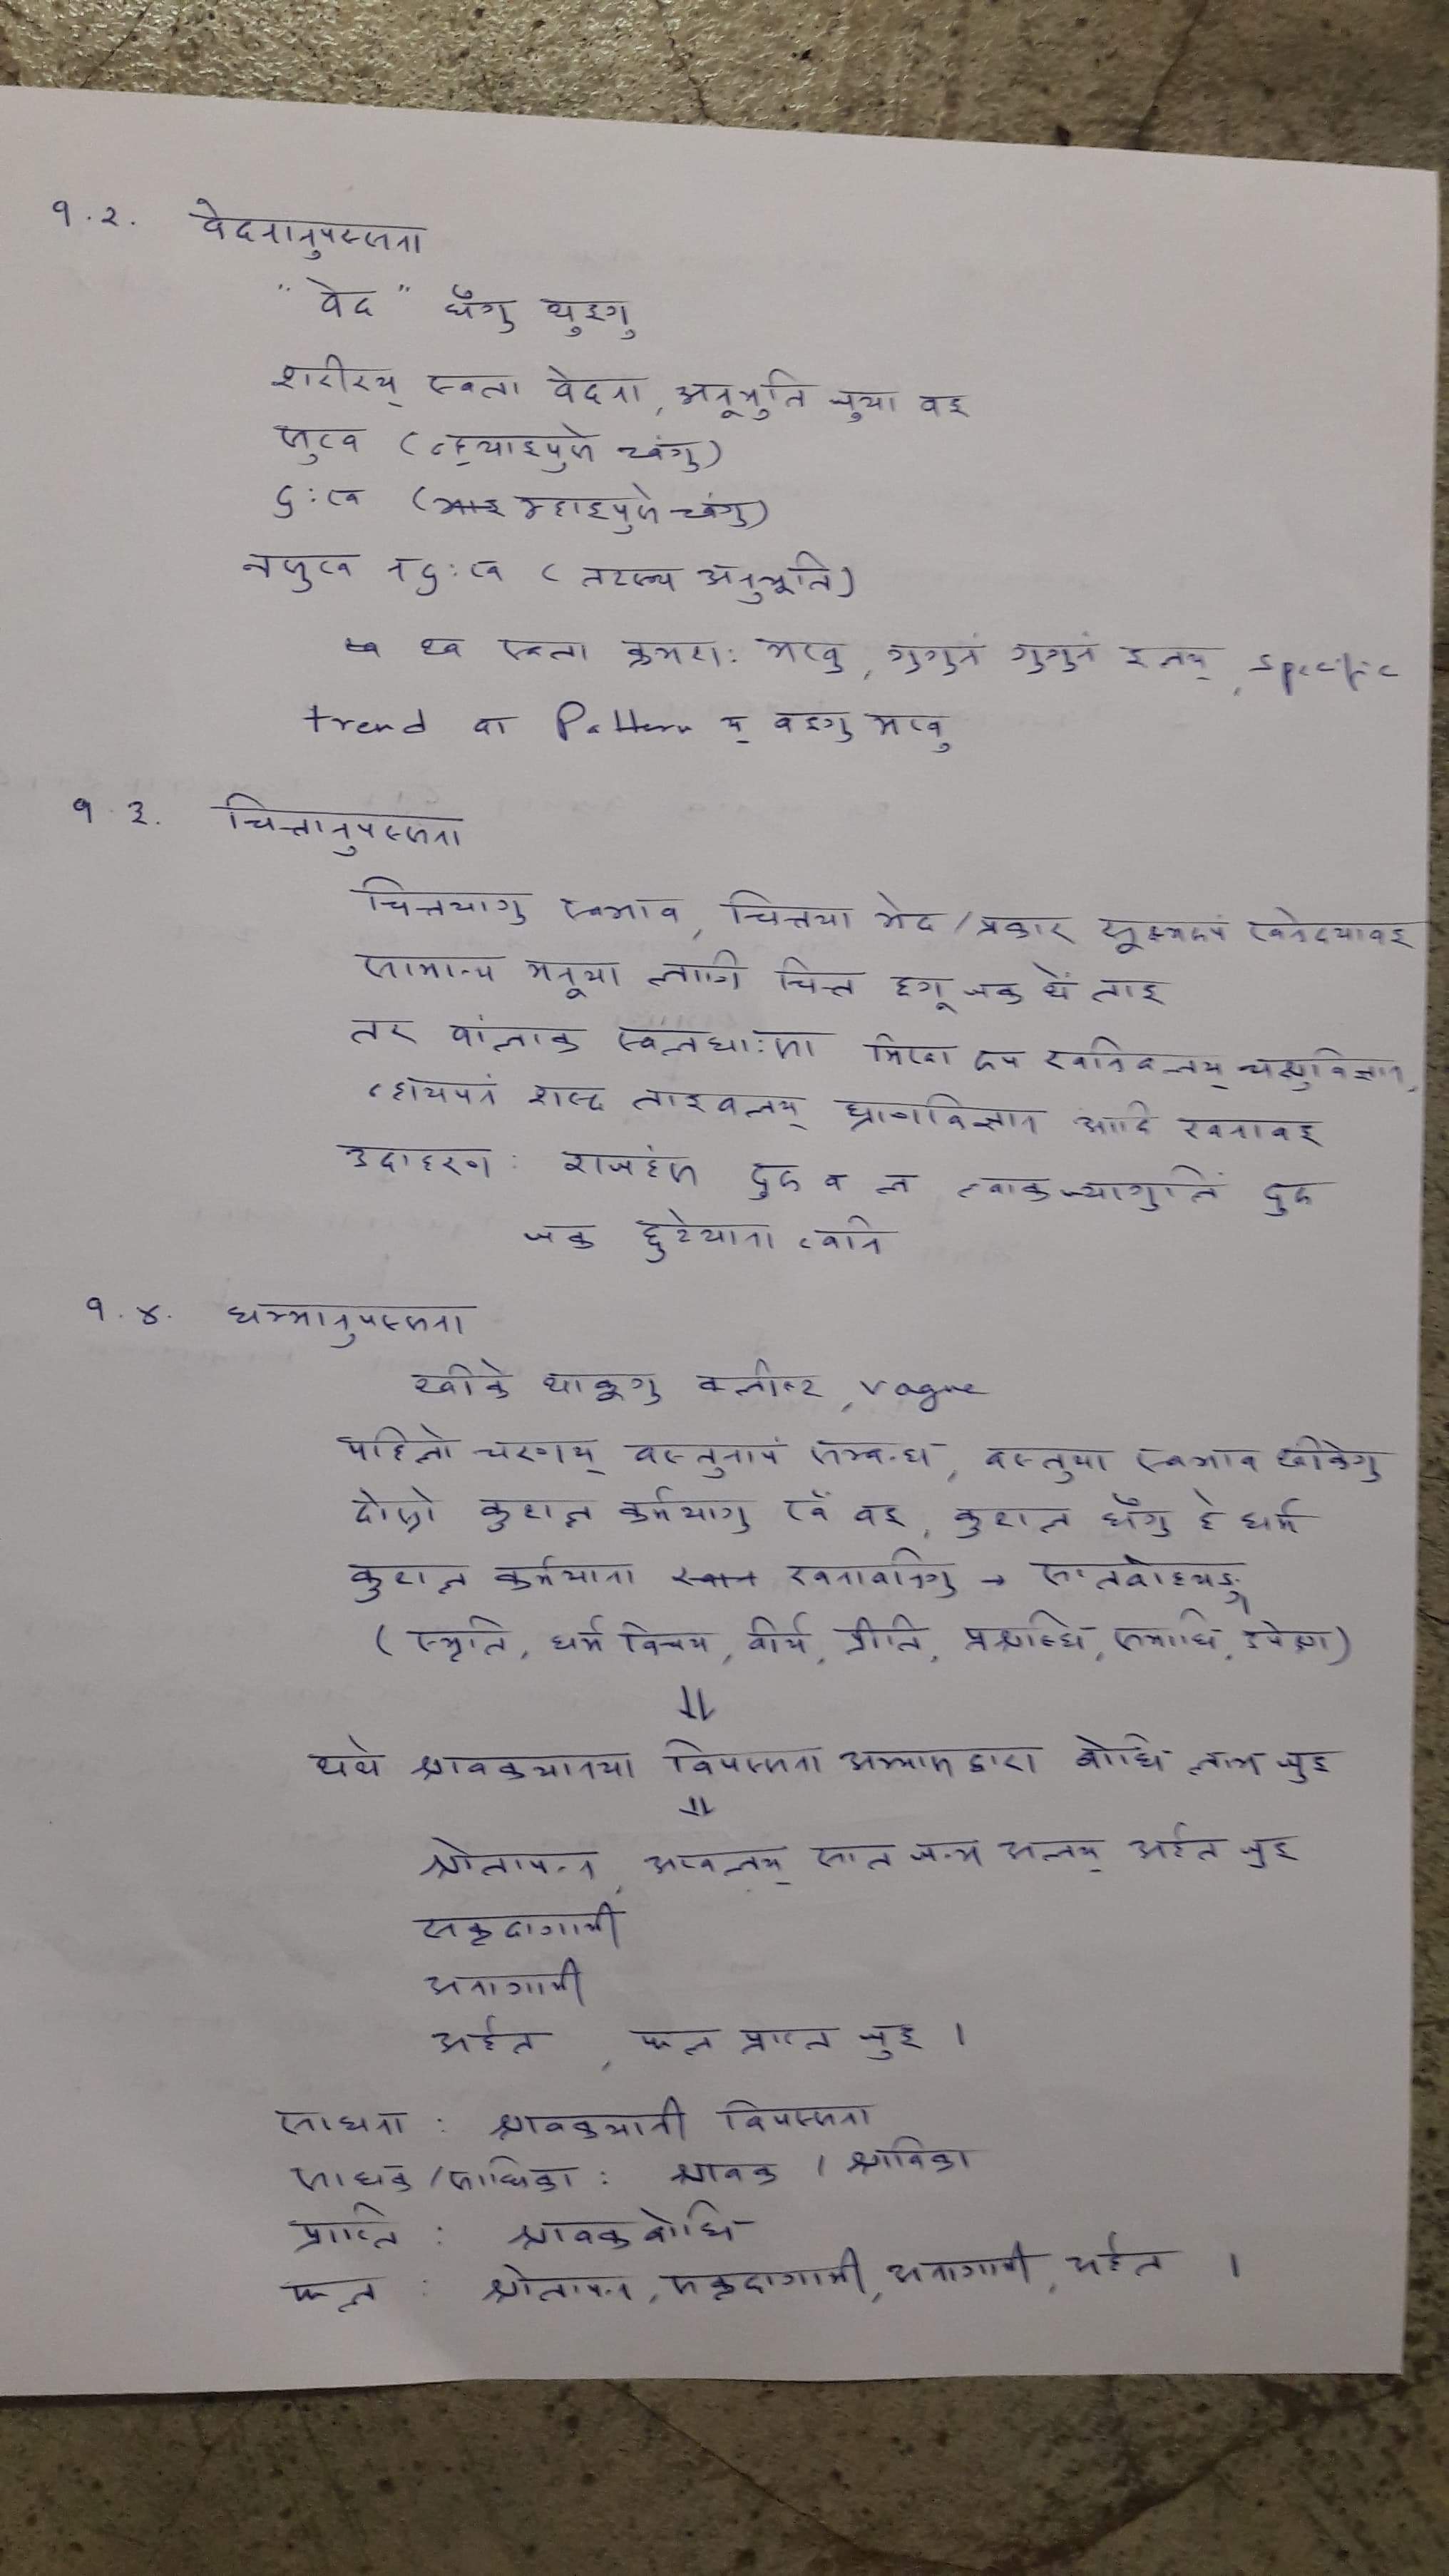 १.२. वेदनानुपस्सना
"वेद" धैगु थुइगु
शरीरय् स्वता वेदना, अनूभुति जुया वइ
सुख (न्ह्याइपुसे च्वंगु)
दुःख (म्हाइपुसे च्वंगु)
नसुख नदुःख (तटस्थ अनुभूति)
थ्व स्वता क्रमशः मखु, गुगुनं गुगुनं इलय्, specific
trend वा Pattern य् वइगु मखु
१.३. चित्तानुपस्सना
चित्तयागु स्वभाव, चित्तया भेद/प्रकार सूक्ष्मरुपं
सामान्य मनूया लागि चित्त छगू जक थें ताइ
तर बांलाक स्वलधाःसा मिखा रुप खनिबलय् चक्षुविज्ञान,
न्हायपनं शब्द ताइबलय् घ्राणविज्ञान आदि खनावइ
उदाहरण: राजहंस दुरु व ल ल्वाकज्यागुलिं दुरु
जक छुटेयाना त्वनि
१.४. धम्मानुपस्सना
थाकूगु क्लीष्ट, vague
पहिलो चरणय् वस्तुनापं सम्बन्ध, वस्तुया स्वभाव
दोस्रो कुशल कर्मयागु खँ वइ, कुशल धैगु हे धर्म
कुशल कर्मयाना खनावनिगु → सप्तबोध्यङ्ग
(स्मृति, धर्म विचय, वीर्य, प्रीति, प्रश्रब्धि, समाधि, उपेक्षा)
⇓
थथे श्रावकयानया विपस्सना अभ्यासद्वारा बोधि लाभ जुइ
⇓
श्रोतापन्न, सात जन्म अर्हत जुइ
सकृदागामी
अनागामी
अर्हत, फल प्राप्त जुइ ।
साधना : श्रावकयानी विपस्सना
साधक/साधिका : श्रावक / श्राविका
प्राप्ति : श्रावकबोधि
फल : श्रोतापन्न, सकृदागामी, अनागामी, अर्हत ।